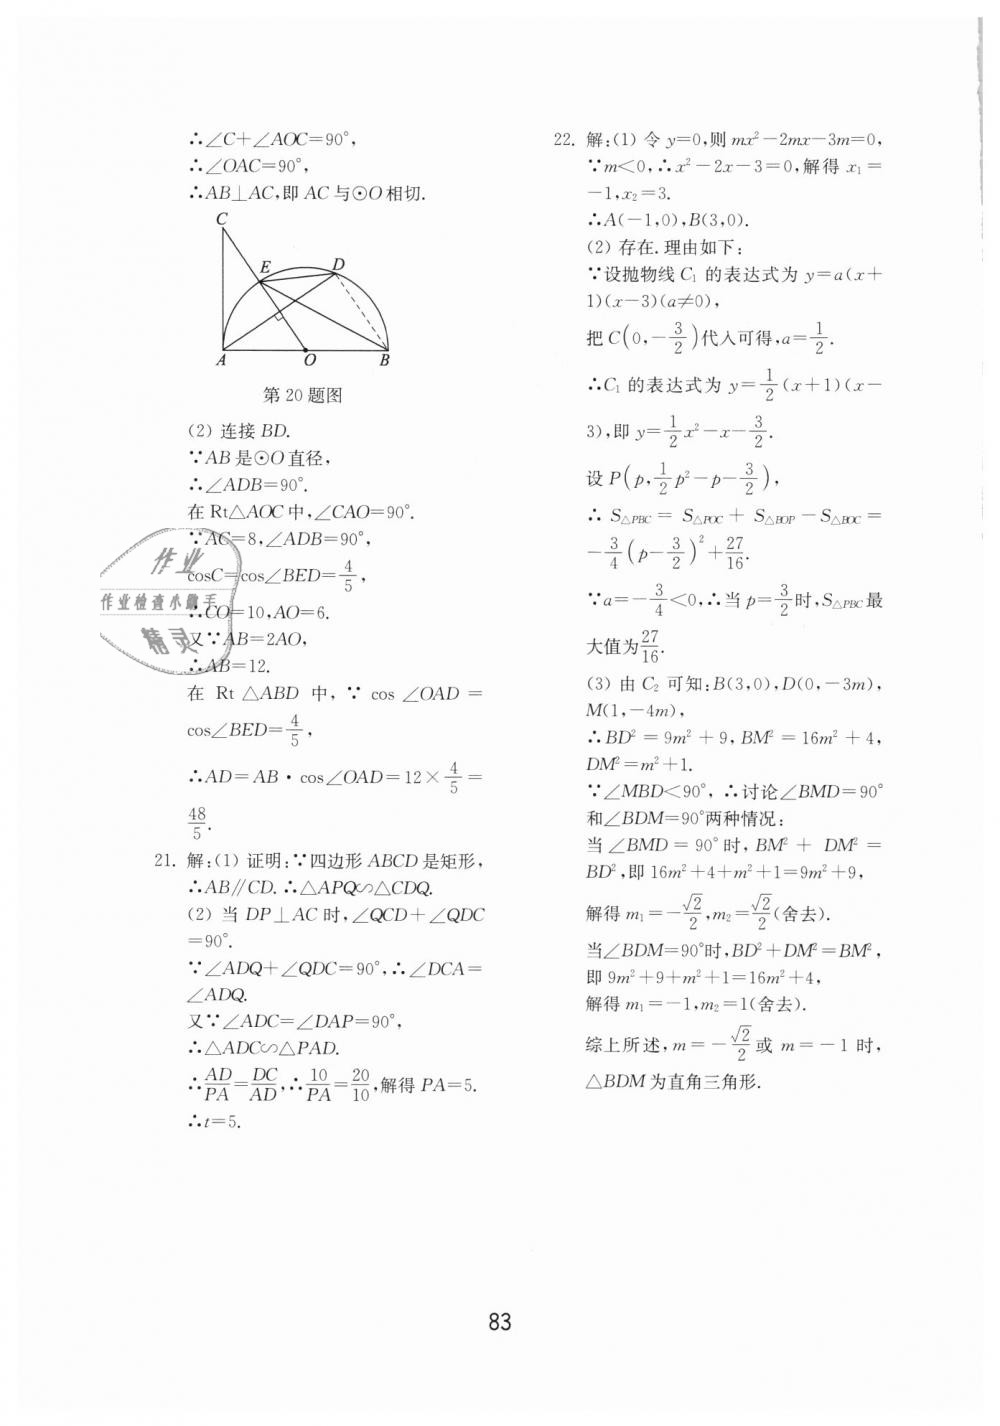 ∴∠C+∠AOC=90°,
∴∠OAC=90°,
∴AB⊥AC,即 AC 与⊙O 相切.
C
E
D
A
O
B
第 20 题图
(2) 连接 BD.
∵AB 是⊙O 直径,
∴∠ADB=90°.
在 Rt△AOC 中,∠CAO=90°.
∵AC=8,∠ADB=90°,
cosC=cos∠BED=4/5,
∴CO=10,AO=6.
又∵AB=2AO,
∴AB=12.
在 Rt △ABD 中, ∵ cos ∠OAD =
cos∠BED=4/5,
∴AD=AB·cos∠OAD=12×4/5=
48/5.
21. 解:(1) 证明:∵四边形 ABCD 是矩形,
∴AB∥CD.∴△APQ∽△CDQ.
(2) 当 DP⊥AC 时,∠QCD+∠QDC
=90°.
∵∠ADQ+∠QDC=90°,∴∠DCA=
∠ADQ.
又∵∠ADC=∠DAP=90°,
∴△ADC∽△PAD.
∴AD/PA=DC/AD,∴10/PA=20/10,解得 PA=5.
∴t=5.
作业
作业检查小助手
精灵
22. 解:(1) 令 y=0,则 mx²-2mx-3m=0,
∵m<0,∴x²-2x-3=0,解得 x₁=
-1,x₂=3.
∴A(-1,0),B(3,0).
(2) 存在.理由如下:
∵设抛物线 C₁ 的表达式为 y=a(x+
1)(x-3)(a≠0),
把 C(0,-3/2)代入可得,a=1/2.
∴C₁ 的表达式为 y=1/2(x+1)(x-
3),即 y=1/2x²-x-3/2.
设 P(p,1/2p²-p-3/2),
∴ S△PBC = S△POC + S△BOP - S△BOC =
-3/4(p-3/2)²+27/16.
∵a=-3/4<0,∴当 p=3/2时,S△PBC最
大值为27/16.
(3) 由 C₂ 可知:B(3,0),D(0,-3m),
M(1,-4m),
∴BD²=9m²+9,BM²=16m²+4,
DM²=m²+1.
∵∠MBD<90°,∴讨论∠BMD=90°
和∠BDM=90°两种情况:
当∠BMD=90°时,BM²+DM²=
BD²,即 16m²+4+m²+1=9m²+9,
解得 m₁=-√2/2,m₂=√2/2(舍去).
当∠BDM=90°时,BD²+DM²=BM²,
即 9m²+9+m²+1=16m²+4,
解得 m₁=-1,m₂=1(舍去).
综上所述,m=-√2/2或 m=-1 时,
△BDM 为直角三角形.
83